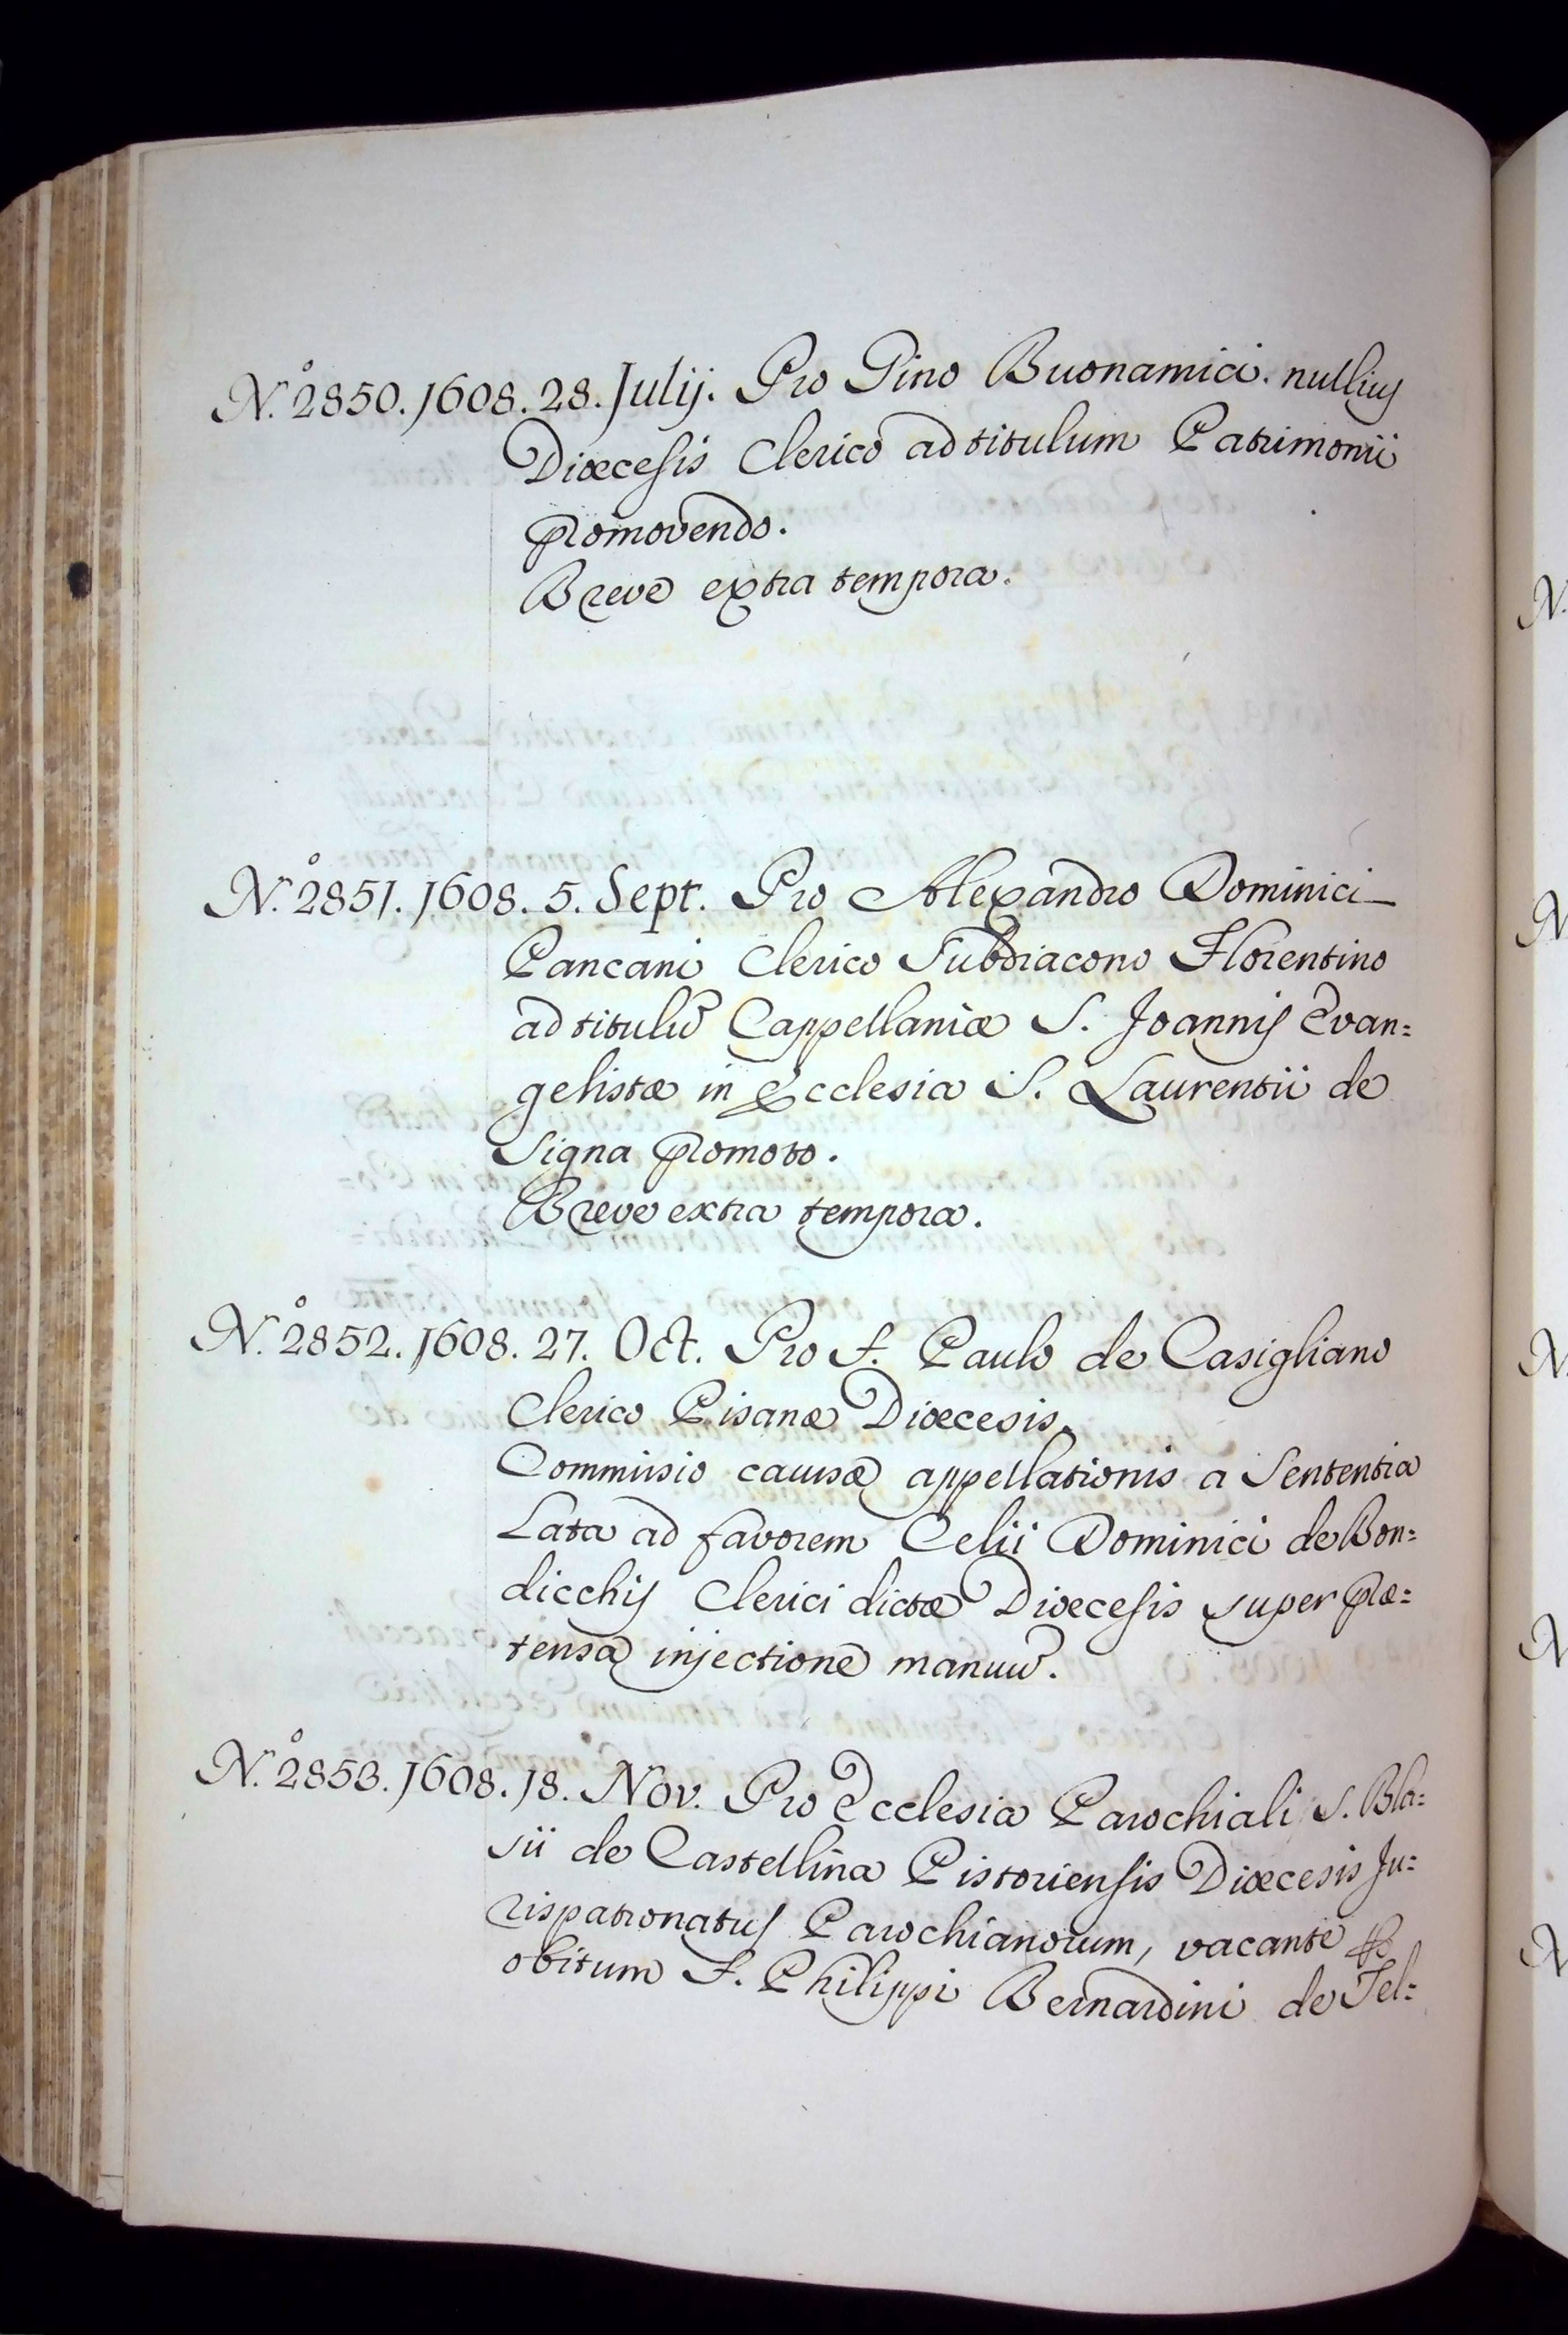 N.º 2850. 1608. 28. Julij. Pro Pino Buonamici. nullius
Diœcesis Clerico ad titulum Patrimonii
promovendo.
Breve extra tempora.
N.º 2851. 1608. 5. Sept. Pro Alexandro Dominici
Pancani Clerico Subdiacono Florentino
ad titulū Cappellaniæ S. Joannis Evan=
gelistæ in Ecclesia S. Laurentii de
Signa promoto.
Breve extra tempora.
N.º 2852. 1608. 27. Oct. Pro F. Paulo de Casigliano
Clerico Pisanæ Diœcesis.
Commissio causæ appellationis a Sententia
Lata ad favorem Celii Dominici de Bon=
dicchis Clerici dictæ Diœcesis super præ=
tensa injectione manuū.
N.º 2853. 1608. 18. Nov. Pro Ecclesia Parochiali S. Bla=
sii de Castellina Pistoriensis Diœcesis Ju=
rispatronatus Parochianorum, vacante p
obitum F. Philippi Bernardini de Tel=
N.
N
N.
N
N